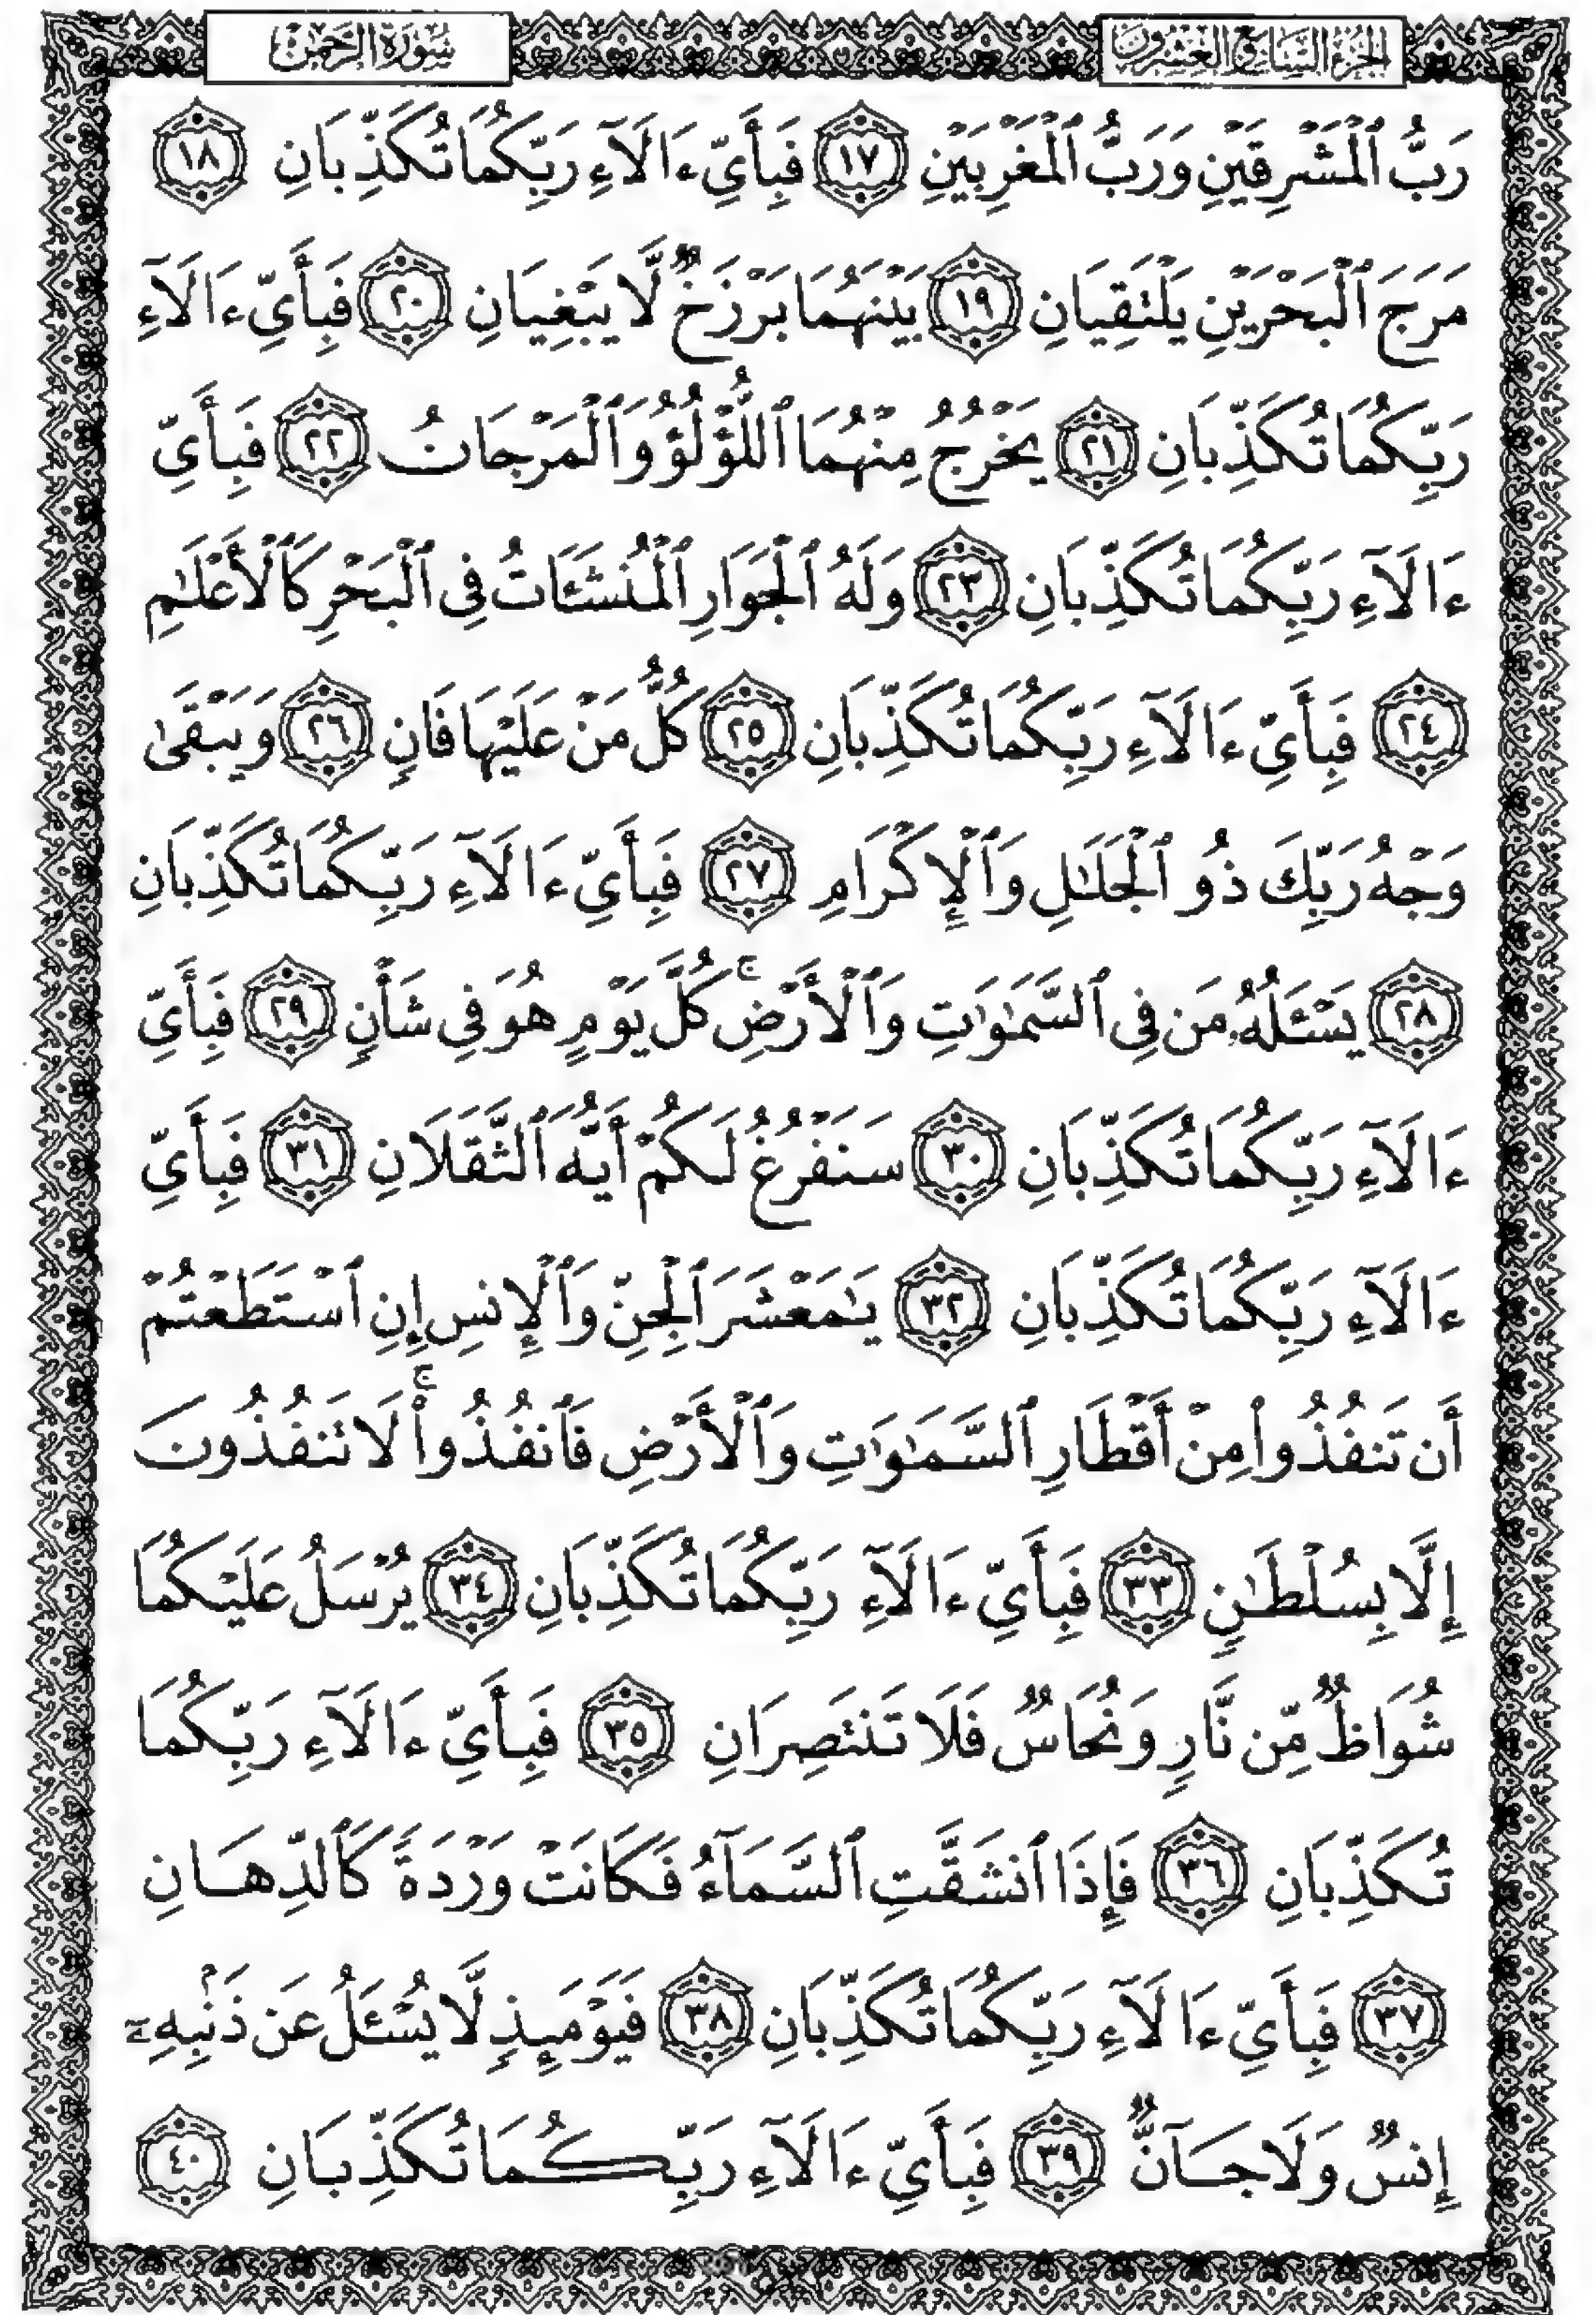 الجزء السابع والعشرون سورة الرحمن
رَبُّ ٱلْمَشْرِقَيْنِ وَرَبُّ ٱلْمَغْرِبَيْنِ ١٧ فَبِأَيِّ ءَالَآءِ رَبِّكُمَا تُكَذِّبَانِ ١٨
مَرَجَ ٱلْبَحْرَيْنِ يَلْتَقِيَانِ ١٩ بَيْنَهُمَا بَرْزَخٌ لَّا يَبْغِيَانِ ٢٠ فَبِأَيِّ ءَالَآءِ
رَبِّكُمَا تُكَذِّبَانِ ٢١ يَخْرُجُ مِنْهُمَا ٱللُّؤْلُؤُ وَٱلْمَرْجَانُ ٢٢ فَبِأَيِّ
ءَالَآءِ رَبِّكُمَا تُكَذِّبَانِ ٢٣ وَلَهُ ٱلْجَوَارِ ٱلْمُنشَـَٔاتُ فِى ٱلْبَحْرِ كَٱلْأَعْلَٰمِ
٢٤ فَبِأَيِّ ءَالَآءِ رَبِّكُمَا تُكَذِّبَانِ ٢٥ كُلُّ مَنْ عَلَيْهَا فَانٍ ٢٦ وَيَبْقَىٰ
وَجْهُ رَبِّكَ ذُو ٱلْجَلَٰلِ وَٱلْإِكْرَامِ ٢٧ فَبِأَيِّ ءَالَآءِ رَبِّكُمَا تُكَذِّبَانِ
٢٨ يَسْـَٔلُهُۥ مَن فِى ٱلسَّمَٰوَٰتِ وَٱلْأَرْضِ ۚ كُلَّ يَوْمٍ هُوَ فِى شَأْنٍ ٢٩ فَبِأَيِّ
ءَالَآءِ رَبِّكُمَا تُكَذِّبَانِ ٣٠ سَنَفْرُغُ لَكُمْ أَيُّهَ ٱلثَّقَلَانِ ٣١ فَبِأَيِّ
ءَالَآءِ رَبِّكُمَا تُكَذِّبَانِ ٣٢ يَٰمَعْشَرَ ٱلْجِنِّ وَٱلْإِنسِ إِنِ ٱسْتَطَعْتُمْ
أَن تَنفُذُوا۟ مِنْ أَقْطَارِ ٱلسَّمَٰوَٰتِ وَٱلْأَرْضِ فَٱنفُذُوا۟ ۚ لَا تَنفُذُونَ
إِلَّا بِسُلْطَٰنٍ ٣٣ فَبِأَيِّ ءَالَآءِ رَبِّكُمَا تُكَذِّبَانِ ٣٤ يُرْسَلُ عَلَيْكُمَا
شُوَاظٌ مِّن نَّارٍ وَنُحَاسٌ فَلَا تَنتَصِرَانِ ٣٥ فَبِأَيِّ ءَالَآءِ رَبِّكُمَا
تُكَذِّبَانِ ٣٦ فَإِذَا ٱنشَقَّتِ ٱلسَّمَآءُ فَكَانَتْ وَرْدَةً كَٱلدِّهَانِ
٣٧ فَبِأَيِّ ءَالَآءِ رَبِّكُمَا تُكَذِّبَانِ ٣٨ فَيَوْمَئِذٍ لَّا يُسْـَٔلُ عَن ذَنۢبِهِۦٓ
إِنسٌ وَلَا جَآنٌّ ٣٩ فَبِأَيِّ ءَالَآءِ رَبِّكُمَا تُكَذِّبَانِ ٤٠